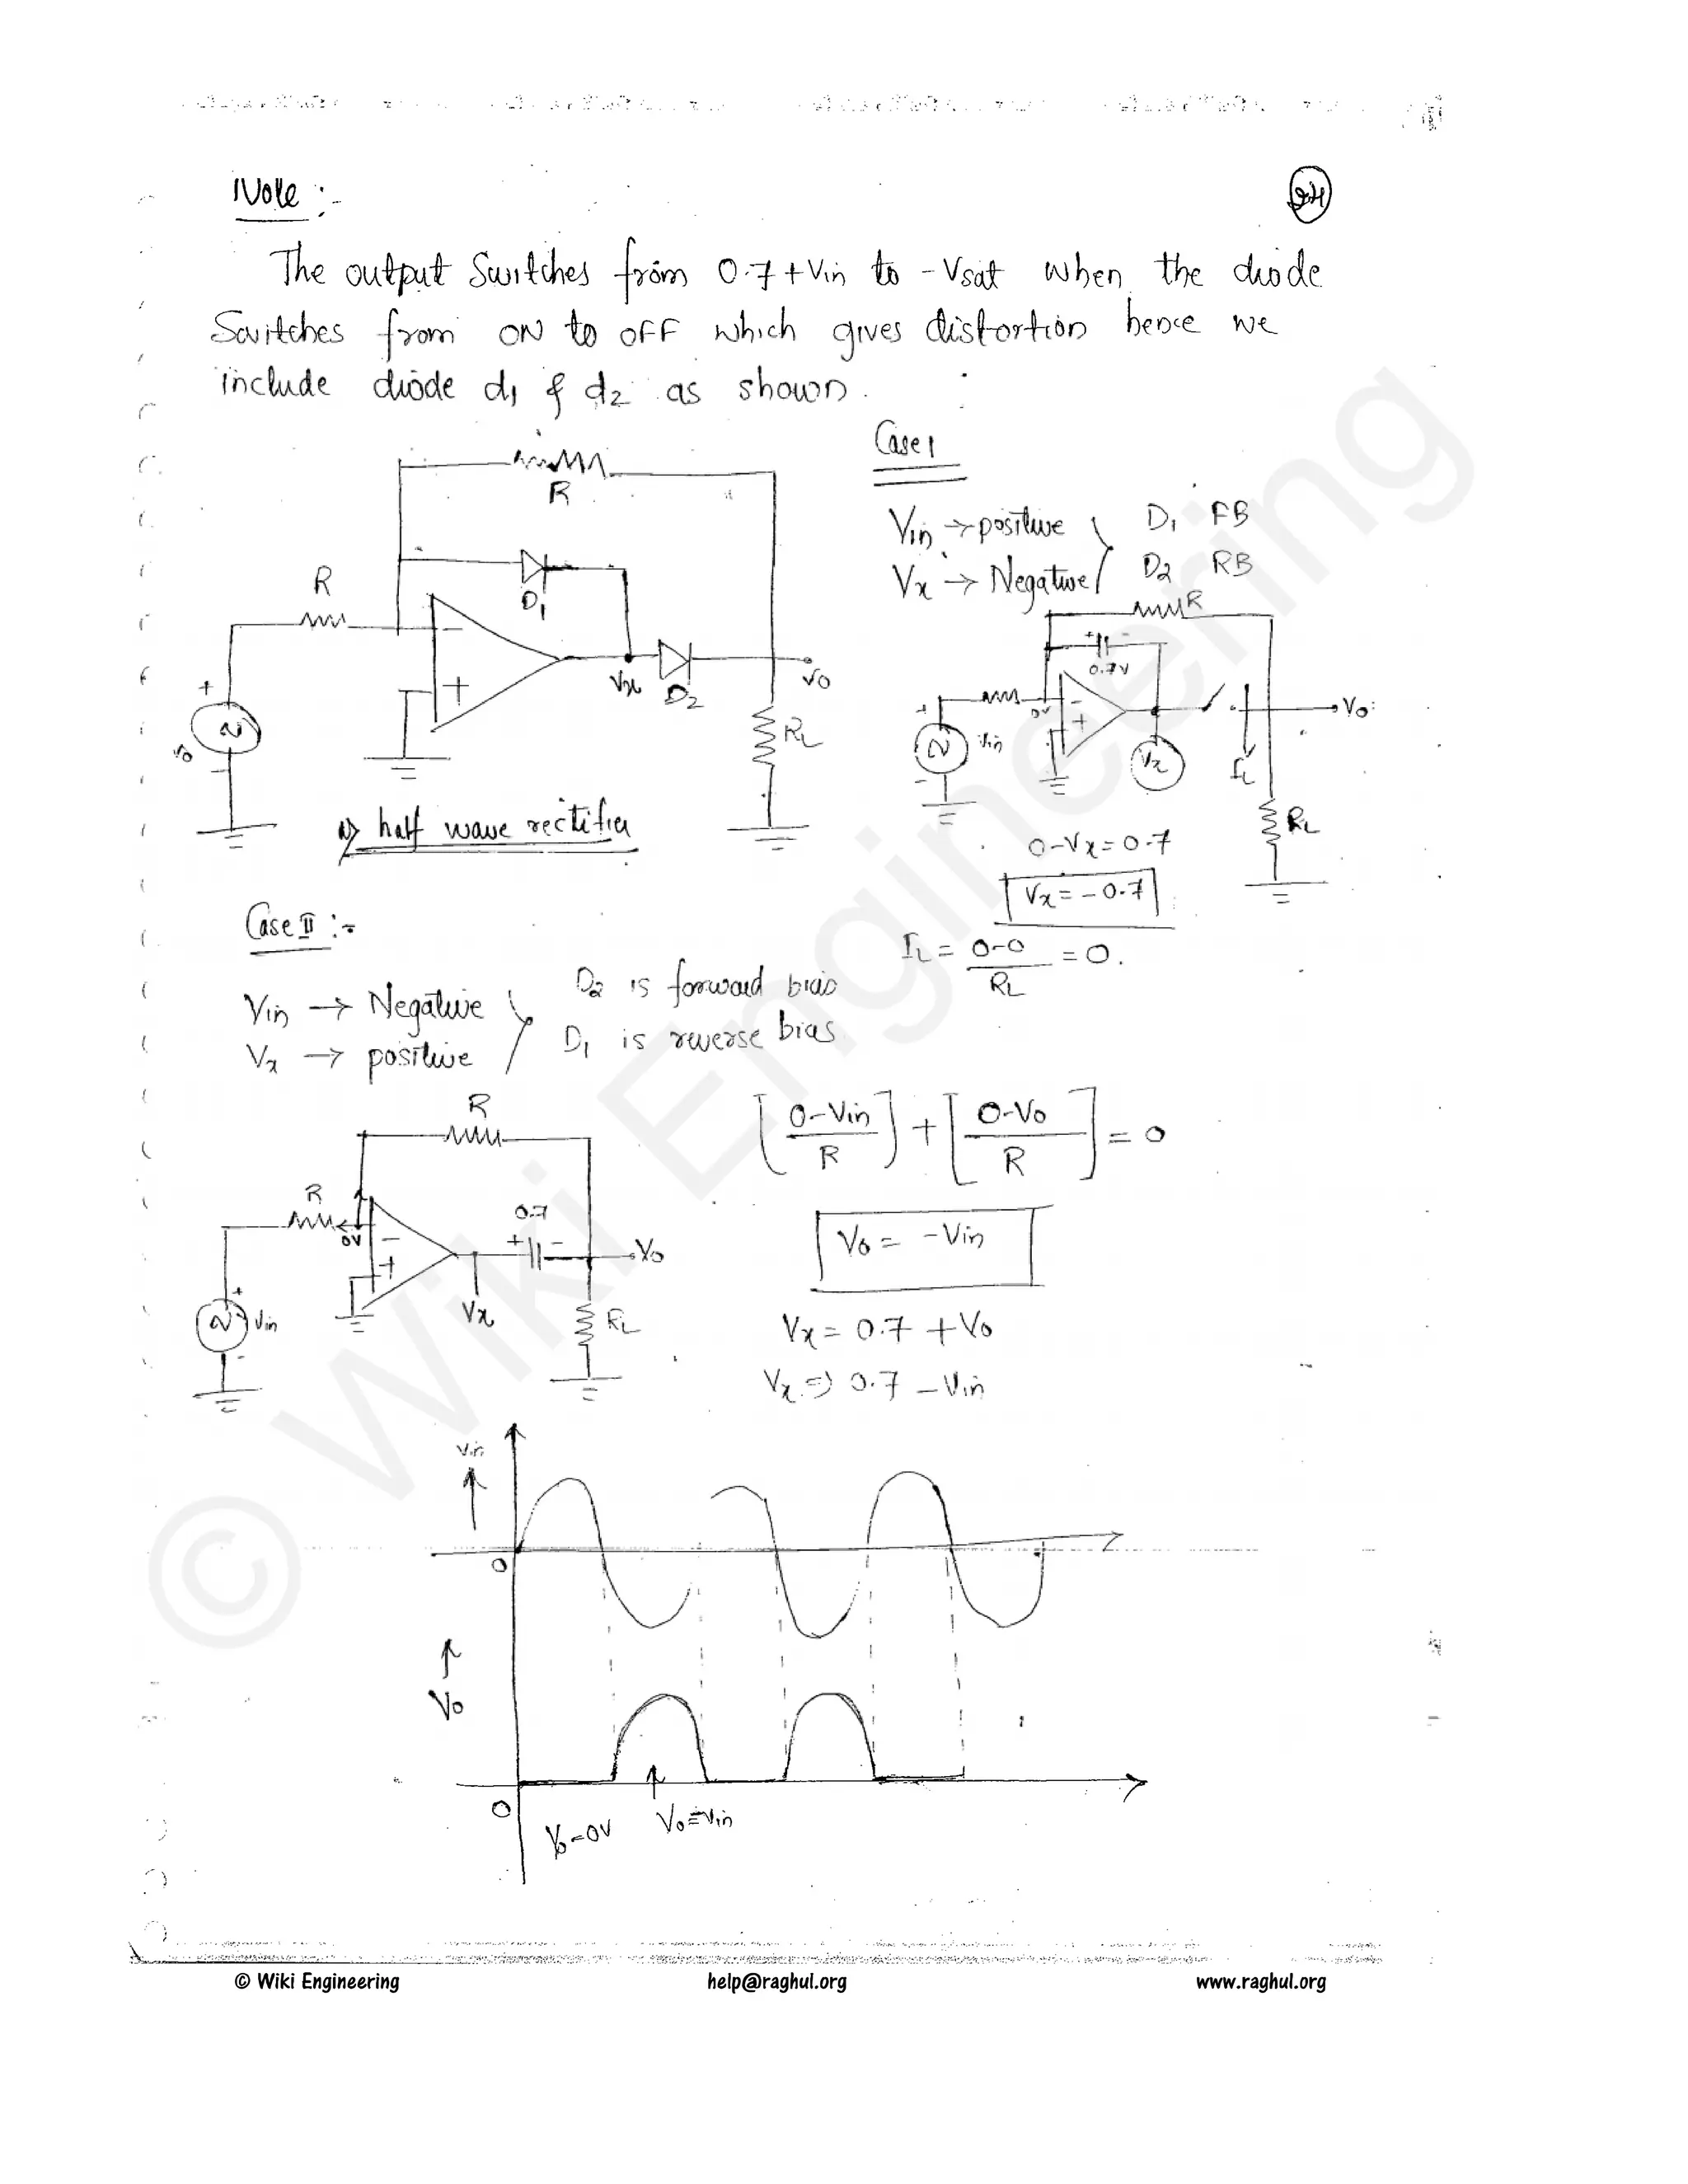 Note :-
24
The output Switches from 0.7+Vin to -Vsat when the diode
Switches from ON to OFF which gives distortion hence we
include diode d1 & d2 as shown.
R
D1
R
Vx
D2
Vo
RL
+
-
a) half wave rectifier
Case 1
Vin → positive
Vx → Negative
D1 FB
D2 RB
R
+ -
0.7V
0V
Vin
Vx
IL
Vo
RL
0-Vx = 0.7
Vx = -0.7
IL = 0-0 / RL = 0.
Case II :-
Vin → Negative
Vx → positive
D2 is forward bias
D1 is reverse bias
R
R
0V
0.7
+ -
Vo
Vx
RL
Vin
[0-Vin / R] + [0-Vo / R] = 0
Vo = -Vin
Vx = 0.7 + Vo
Vx ⇒ 0.7 - Vin
Vin
0
Vo
0
Vo=0V
Vo=-Vin
© Wiki Engineering
© Wiki Engineering help@raghul.org www.raghul.org